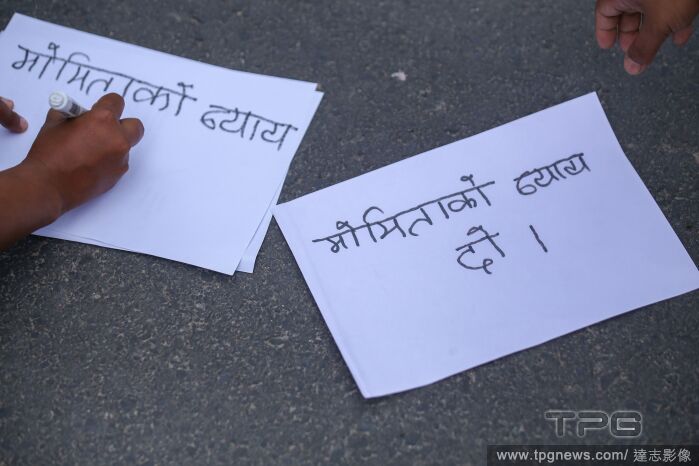 मोमिताको न्याय
मोमिताको न्याय
दो ।
TPG
www.tpgnews.com/ 達志影像